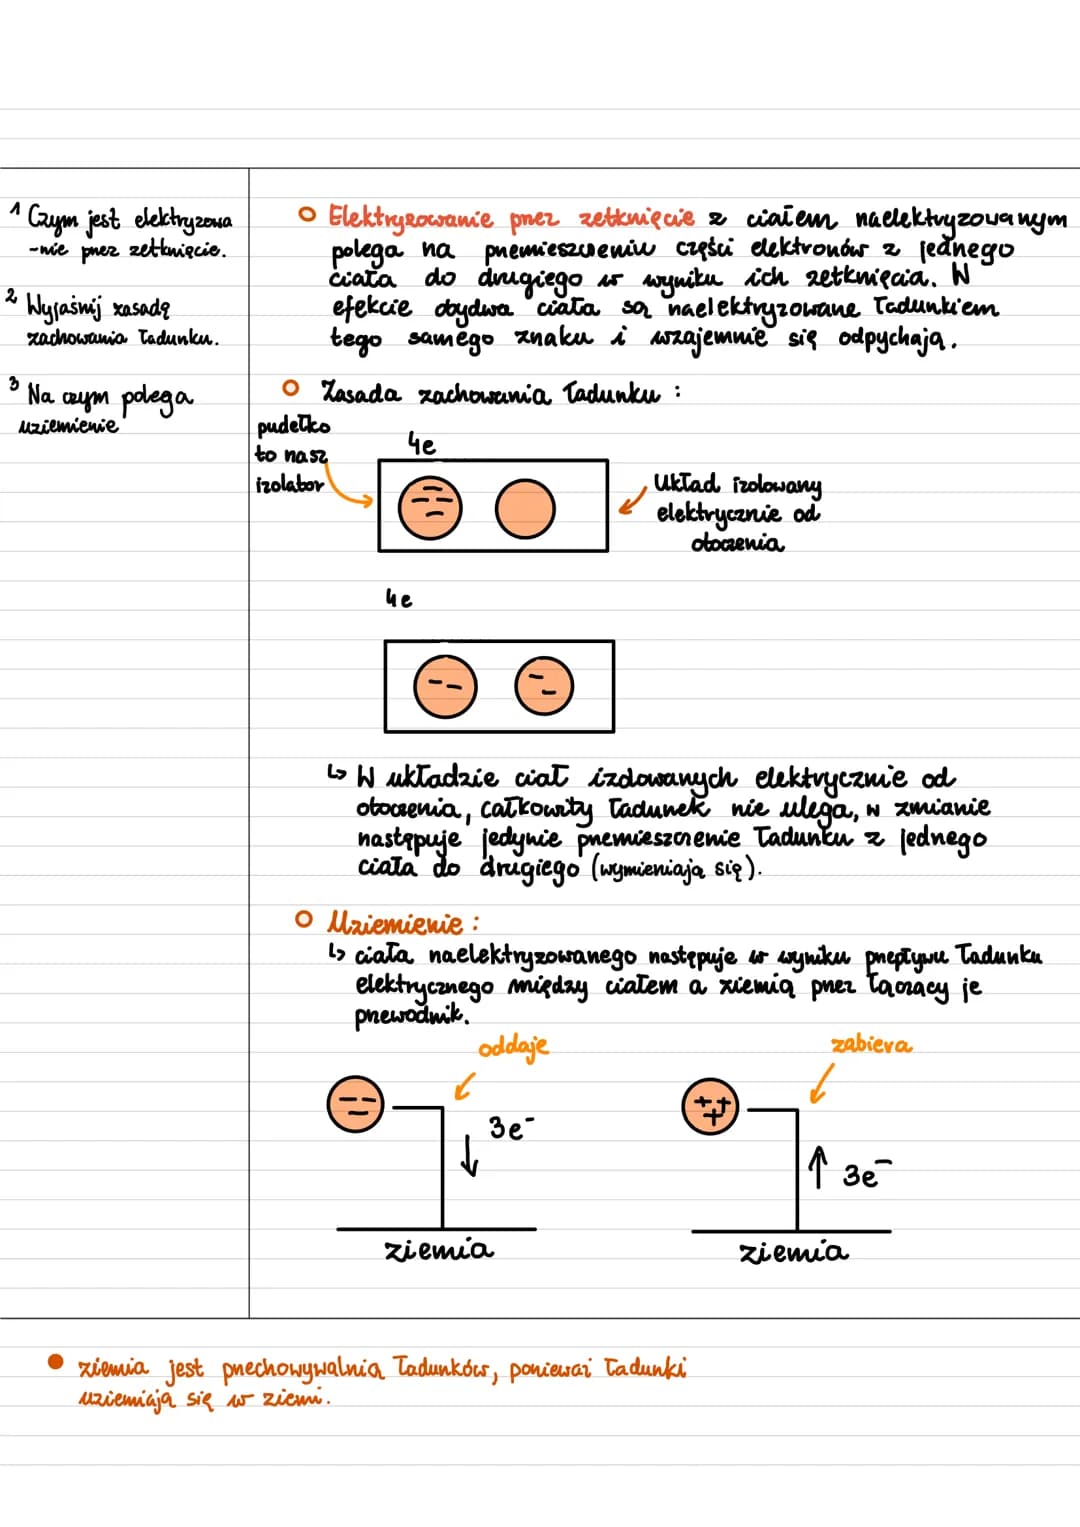 1 Czym jest elektryzowa
-nie przez zetknięcie.
2 Wyjaśnij zasadę
zachowania ładunku.
3 Na czym polega
uziemienie
Elektryzowanie przez zetknięcie z ciałem naelektryzowanym
polega na przemieszczeniu części elektronów z jednego
ciała do drugiego w wyniku ich zetknięcia. W
efekcie obydwa ciała są naelektryzowane ładunkiem
tego samego znaku i wzajemnie się odpychają.
Zasada zachowania ładunku :
pudełko
to nasz
izolator
4e
Układ izolowany
elektrycznie od
otoczenia
4e
↳ W układzie ciał izolowanych elektrycznie od
otoczenia, całkowity ładunek nie ulega, w zmianie
następuje jedynie przemieszczenie ładunku z jednego
ciała do drugiego (wymieniają się).
Uziemienie :
↳ ciała naelektryzowanego następuje w wyniku przepływu ładunku
elektrycznego między ciałem a ziemią przez łączący je
przewodnik.
oddaje
3e⁻
ziemia
zabiera
3e⁻
ziemia
ziemia jest przechowywalnią ładunków, ponieważ ładunki
uziemiają się w ziemi.